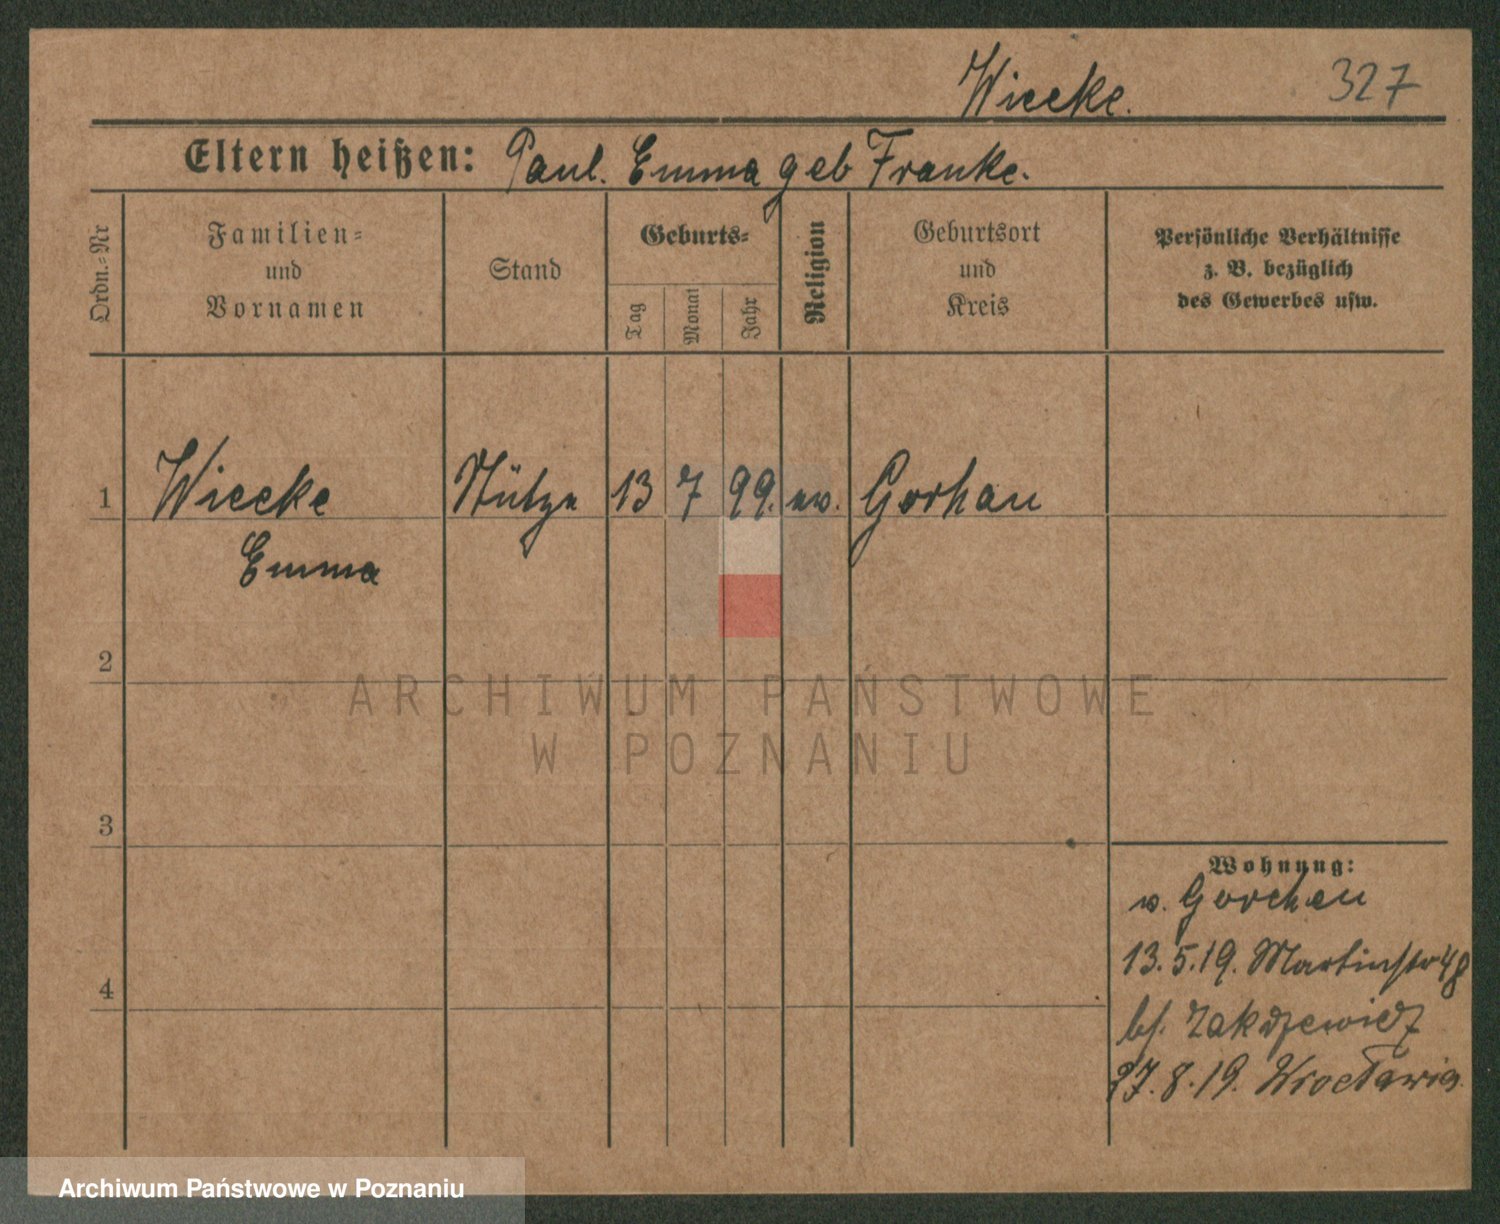 Wiecke.
327
Eltern heißen: Paul. Emma geb Franke.
Ordn.=Nr
Familien=
und
Vornamen
Stand
Geburts=
Tag
Monat
Jahr
Religion
Geburtsort
und
Kreis
Persönliche Verhältnisse
z. B. bezüglich
des Gewerbes usw.
1 Wiecke Stütze 13 7 99. ev. Gorhau
Emma
2
ARCHIWUM PAŃSTWOWE
W POZNANIU
3
4
Wohnung:
v. Gorchau
13.5.19. Martinstr 48
bf.
27.8.19. Wrocławia
Archiwum Państwowe w Poznaniu